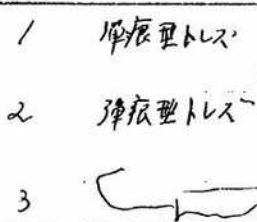 1 弾痕型トレス
2 弾痕型トレス
3